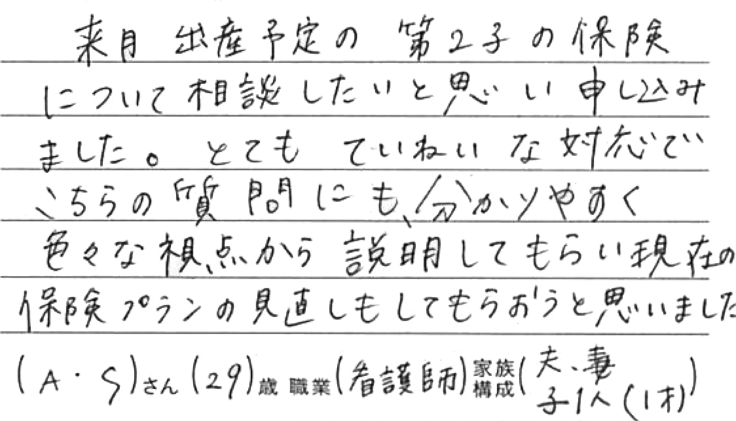 来月 出産予定の 第2子の保険
について相談したいと思い申し込み
ました。とても ていねいな対応で
こちらの質問にも、分かりやすく
色々な視点から説明してもらい現在の
保険プランの見直しもしてもらおうと思いました
(A・S)さん(29)歳 職業(看護師)家族構成(夫、妻
子1人(1才))